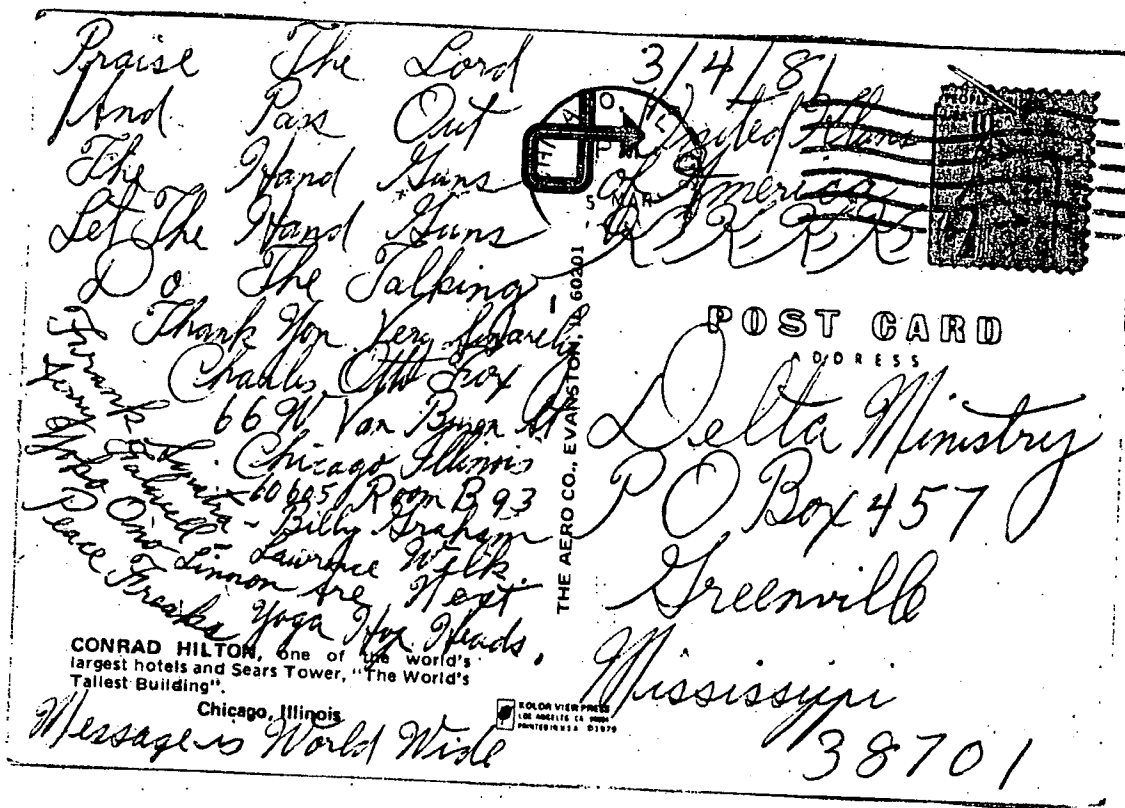 Praise The Lord
And Pass Out
The Hand Guns
Let The Hand Guns
Do The Talking
Thank You Very
Charles Otto Fox
66 W Van Buren St
Chicago Illinois
60605 Room B 93
Frank Synatra - Billy Graham
Jerry Falwell - Lawrence Welk
Yoko Ono Linnon Are Next
Peace Freaks Yoga Hog Heads.
CONRAD HILTON, one of the world's
largest hotels and Sears Tower, "The World's
Tallest Building".
Chicago, Illinois
Message is World Wide
THE AERO CO., EVANSTON, IL 60201
KOLOR VIEW PRESS
LOS ANGELES CA
PRINTED IN USA D1979
3/4/81
United Klans
of America
K.K.K.K.
5 MAR
POST CARD
ADDRESS
Delta Ministry
P O Box 457
Greenville
Mississippi
38701